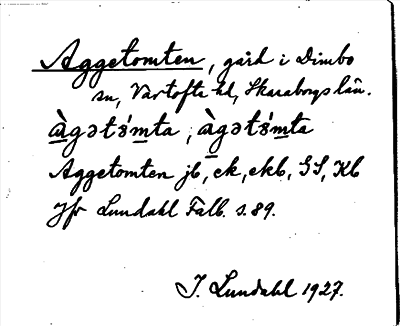 Aggetomten, gård i Dimbo
sn, Vartofta hd, Skaraborgs län.
àgətɜ́mta, àgətɜ́mta
Aggetomten jb, ek, ekb, GS, Kb
Jfr Lundahl Falb. s. 89.
I. Lundahl 1927.